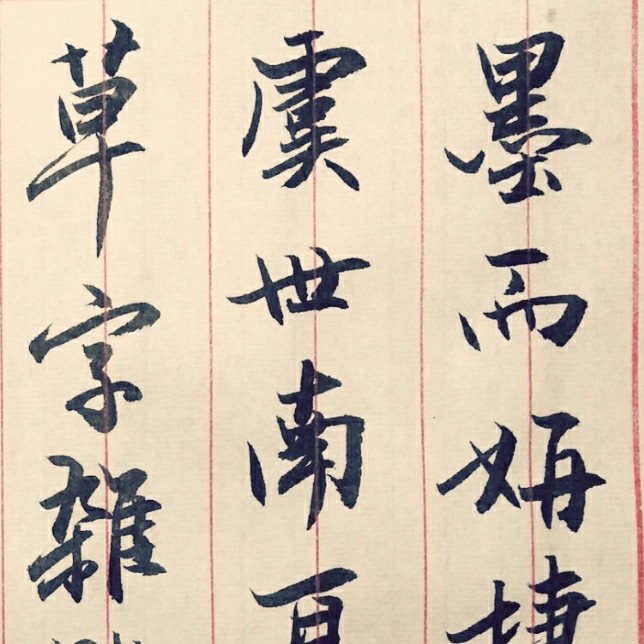 墨而妍捷
虞世南
草字雜